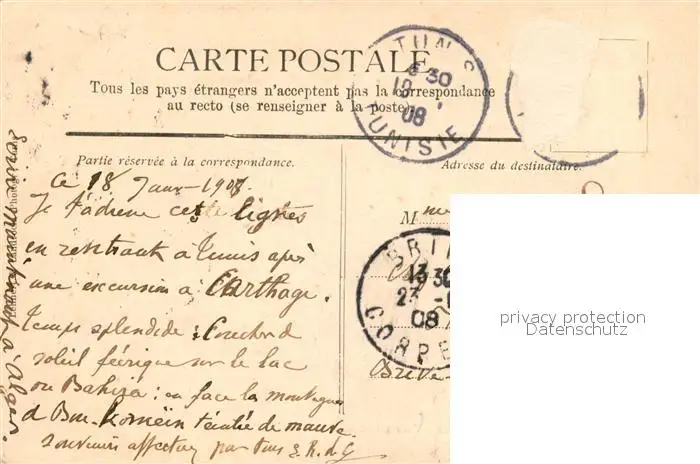 CARTE POSTALE
Tous les pays étrangers n'acceptent pas la correspondance
au recto (se renseigner à la poste)
Partie réservée à la correspondance.
Adresse du destinataire.
TUNIS
6 30
18
08
TUNISIE
Ce 18 Janv - 1908.
Je t'adresse cette lignes
en rentrant à Tunis après
une excursion à Carthage.
Temps splendide : Coucher de
soleil féerique sur le lac
ou Bahira : en face la montagne
d Bou-Korneïn teintée de mauve.
Souvenirs affectueux par tous
M
BRI
13 30
23
08
CORRE
Brive-
privacy protection
Datenschutz